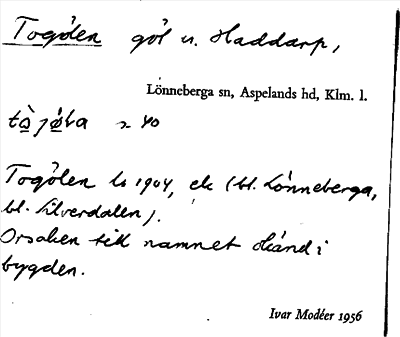 Togölen göl u. Haddarp,
Lönneberga sn, Aspelands hd, Klm. l.
Togölen ls 1904, ek (bl. Lönneberga,
bl. Silverdalen).
Orsaken till namnet okänd i
bygden.
Ivar Modéer 1956